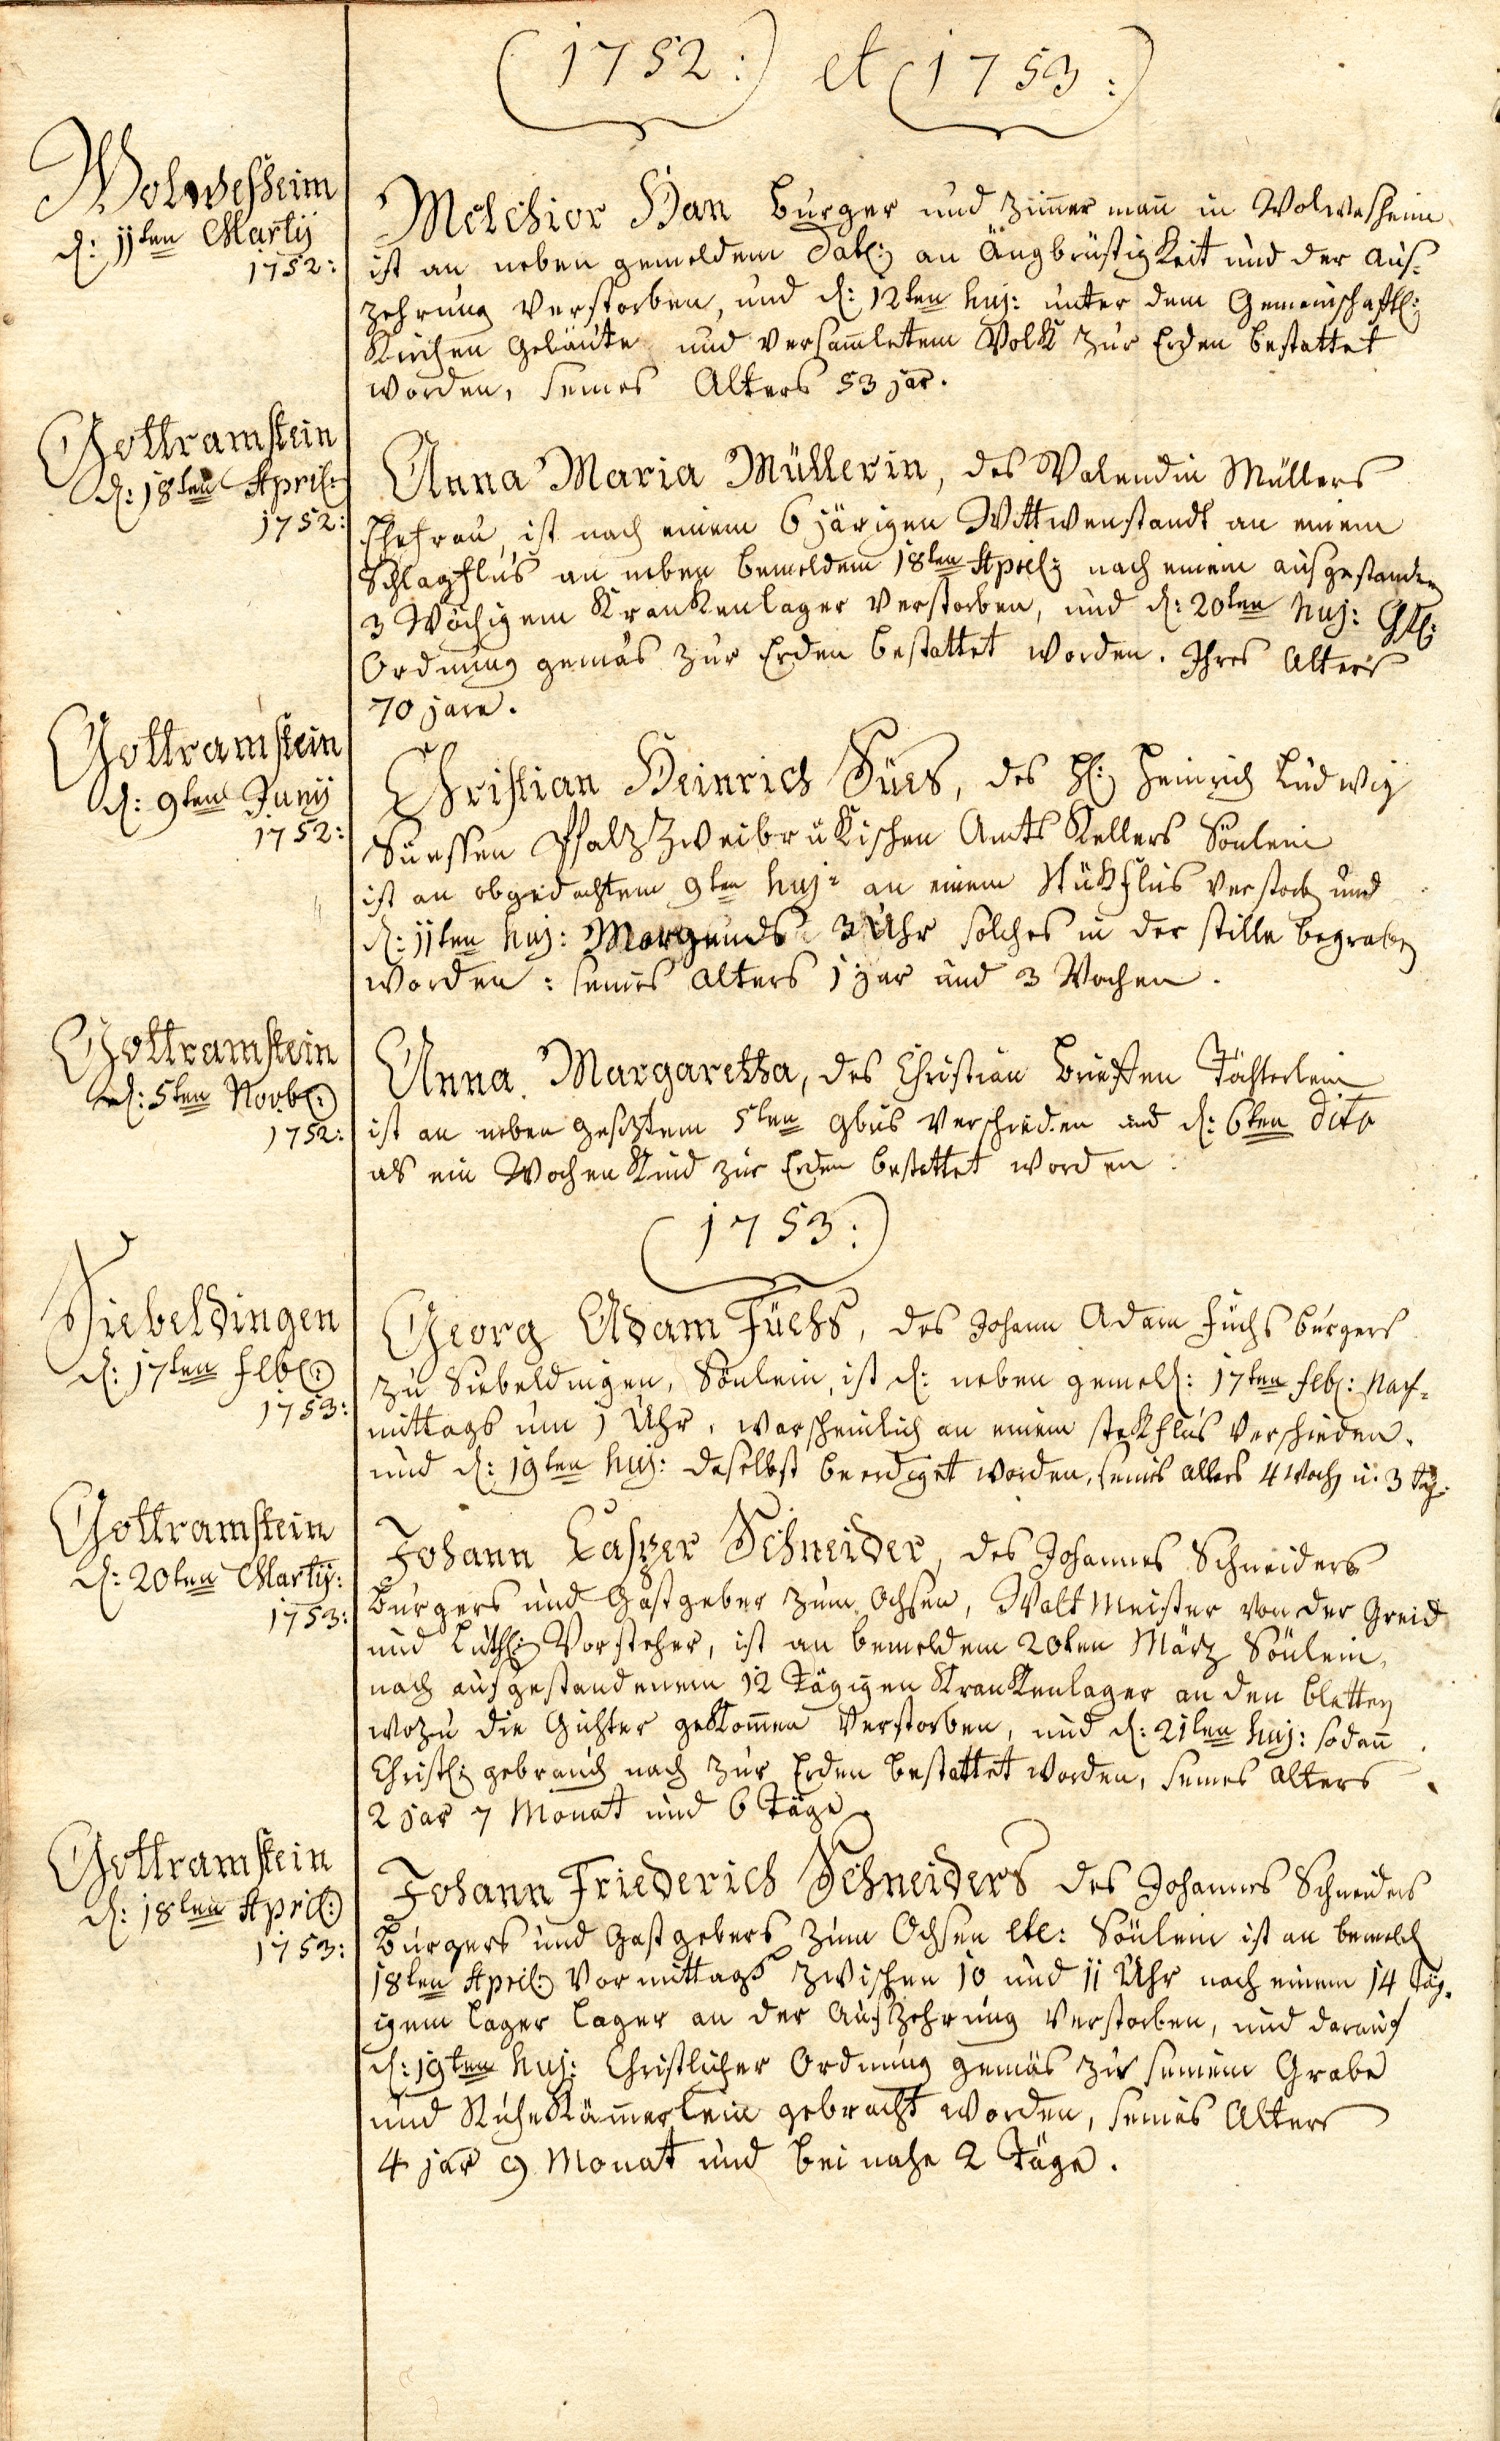 (1752:) et (1753:)
Wolwesheim
d: 11ten Martij
1752:
Melchior Han burger und Zim̅er man̅ in Wolwesheim
ist an neben gemeldem Dat: an Ängbrüstigkeit und der Aus-
zehrung verstorben, und d: 12ten huj: unter dem Gemeinschaftl:
Kirchen Geläute und versam̅letem Volk zur Erden bestattet
worden, seines Alters 53 jar.
Gottramstein
d: 18ten April:
1752:
Anna Maria Müllerin, des Valendin Müllers
Ehefrau, ist nach einem 6 järigen Wittwenstandt an einem
Schlagflus an neben bemeldem 18ten April: nach einem ausgestanden
3 Wöchigem Krankenlager verstorben, und d: 20ten huj:
Ordnung gemäs zur Erden bestattet worden. Ihres Alters
70 jare.
Gottramstein
d: 9ten Junij
1752:
Christian Heinrich Süss, des H: Heinrich Ludwig
Suessen Pfalz Zweibrükischen Amts Kellers Sönlein
ist an obgedachtem 9ten huj: an einem Stükflus verstorb und
d: 11ten huj: Morgends 3 Uhr solches in der stille begraben
worden: seines Alters 1 jar und 3 Wochen.
Gottramstein
d: 5ten Novb:
1752:
Anna Margaretha, des Christian Töchterlein
ist an neben gesetztem 5ten 9bris verschieden und d: 6ten dito
als ein Wochen Kind zur Erden bestattet worden:
(1753:)
Siebeldingen
d: 17ten Feb:
1753:
Georg Adam Füchs, des Johann Adam Fuchs bürgers
zu Siebeldingen, Sönlein, ist d: neben gemeld: 17ten Feb: Nach-
mittags um 1 Uhr, warscheinlich an einem stekflus verschieden,
und d: 19ten huj: daselbst beerdiget worden, seines alters 4 Woch u. 3 Tag.
Gottramstein
d: 20ten Martij:
1753:
Johann Casper Schneider, des Johannes Schneiders
Burgers und Gastgeber zum Ochsen, Walt Meister von der Greid
und Luth: Vorsteher, ist an bemeldem 20ten März Sönlein,
nach ausgestandenem 12 Tägigen Krankenlager an den bletten
wozu die Gichter gekom̅en verstorben, und d: 21ten huj: sodan̅
Christl: gebrauch nach zur Erden bestattet worden, seines Alters
2 jar 7 Monat und 6 Täge.
Gottramstein
d: 18ten April:
1753:
Johann Friederich Schneiders des Johannes Schneiders
Burgers und Gastgebers zum Ochsen etc: Sönlein ist an bemeld
18ten April: Vormittags zwischen 10 und 11 Uhr nach einem 14 Täg-
igem Lager Lager an der Auszehrung verstorben, und darauf
d: 19ten huj: Christlicher Ordnung gemäs zu seinem Grabe
und Ruhe Käm̅erlein gebracht worden, seines Alters
4 jar 9 Monat und bei nahe 2 Täge.